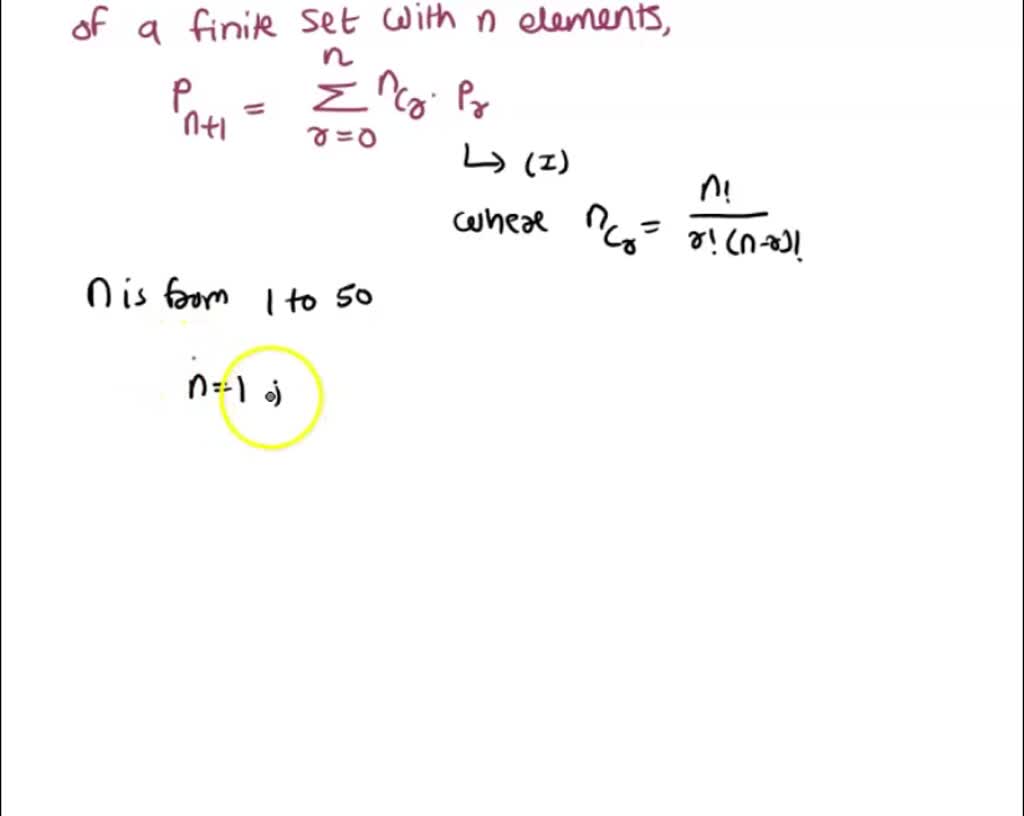 of a finite set with n elements,
P_{n+1} = \sum_{r=0}^{n} n_{C_r} \cdot P_r
↳ (I)
where n_{C_r} = \frac{n!}{r!(n-r)!}
n is from 1 to 50
n=1 ;